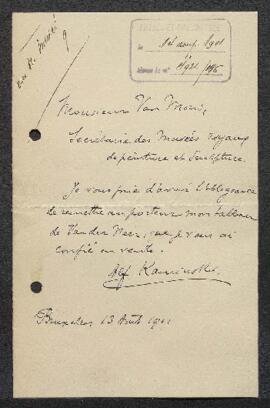 le 14 1901
Monsieur Van
Secrétaire des Musées royaux
de peinture et sculpture.
Je vous prie d'avoir l'obligeance
de remettre au porteur mon tableau
de Van der Neer, que je vous ai
confié en vente.
Bruxelles 13 Août 1901